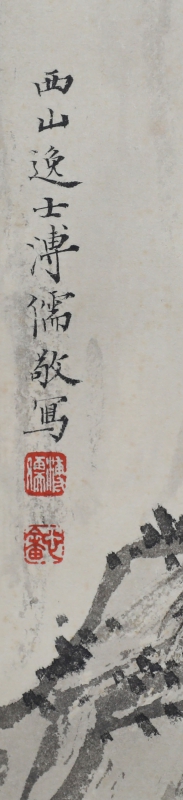 西山逸士溥儒敬寫
溥儒